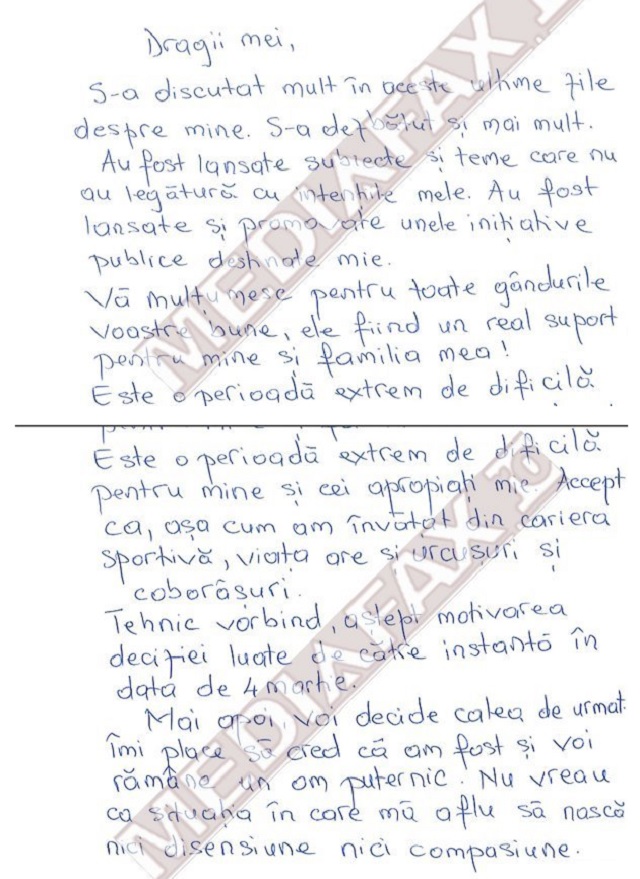 Dragii mei,
S-a discutat mult în aceste ultime zile
despre mine. S-a dezbătut și mai mult.
Au fost lansate subiecte și teme care nu
au legătură cu intențiile mele. Au fost
lansate și promovate unele inițiative
publice destinate mie.
Vă mulțumesc pentru toate gândurile
voastre bune, ele fiind un real suport
pentru mine și familia mea!
Este o perioadă extrem de dificilă
Este o perioadă extrem de dificilă
pentru mine și cei apropiați mie. Accept
ca, așa cum am învățat din cariera
sportivă, viața are și urcușuri și
coborâșuri.
Tehnic vorbind, aștept motivarea
deciziei luate de către instanță în
data de 4 martie.
Mai apoi, voi decide calea de urmat.
Îmi place să cred că am fost și voi
rămâne un om puternic. Nu vreau
ca situația în care mă aflu să nască
nici disensiune nici compasiune.
MEDIAFAX
MEDIAFAX.RO